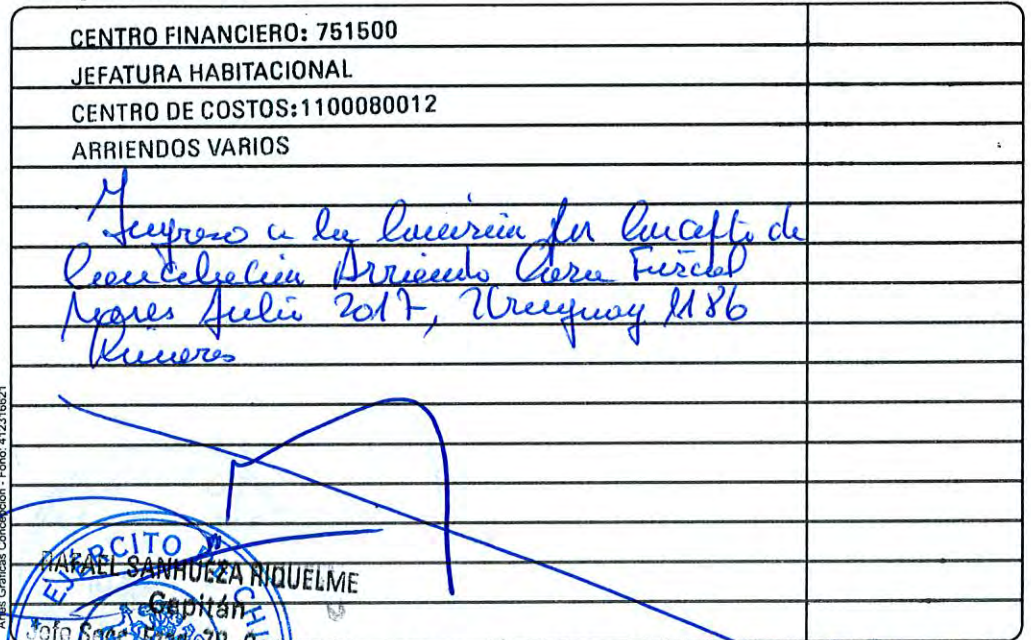 CENTRO FINANCIERO: 751500
JEFATURA HABITACIONAL
CENTRO DE COSTOS:1100080012
ARRIENDOS VARIOS
Ingreso a la Comisión por Concepto de
Cancelación Arriendo Casa Fiscal
Julio 2017, Uruguay 1186
Artes Gráficas Concepción - Fono: 412316621
EJÉRCITO
RAFAEL SANHUEZA RIQUELME
Capitán